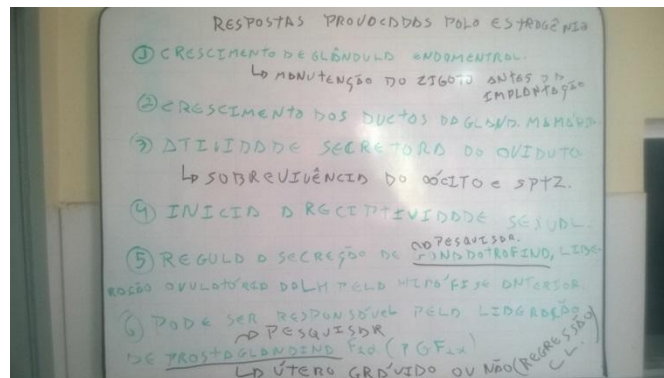 RESPOSTAS PROVOCADAS PELO ESTROGÊNIO
① CRESCIMENTO DE GLÂNDULA ENDOMENTRAL.
↳ MANUTENÇÃO DO ZIGOTO ANTES DA
IMPLANTAÇÃO
② CRESCIMENTO DOS DUCTOS DA GLAND. MAMÁRIA
③ ATIVIDADE SECRETORA DO OVIDUTO
↳ SOBREVIVÊNCIA DO OÓCITO e SPTZ.
④ INICIA A RECEPTIVIDADE SEXUAL.
PESQUISAR.
⑤ REGULA A SECREÇÃO DE GONADOTROFINA, LIBE-
RAÇÃO OVULATÓRIA DO LH PELA HIPÓFISE ANTERIOR.
⑥ PODE SER RESPONSÁVEL PELA LIBERAÇÃO
PESQUISAR
DE PROSTAGLANDINA F2α (PGF2α)
↳ ÚTERO GRÁVIDO OU NÃO (REGRESSÃO
CL.)